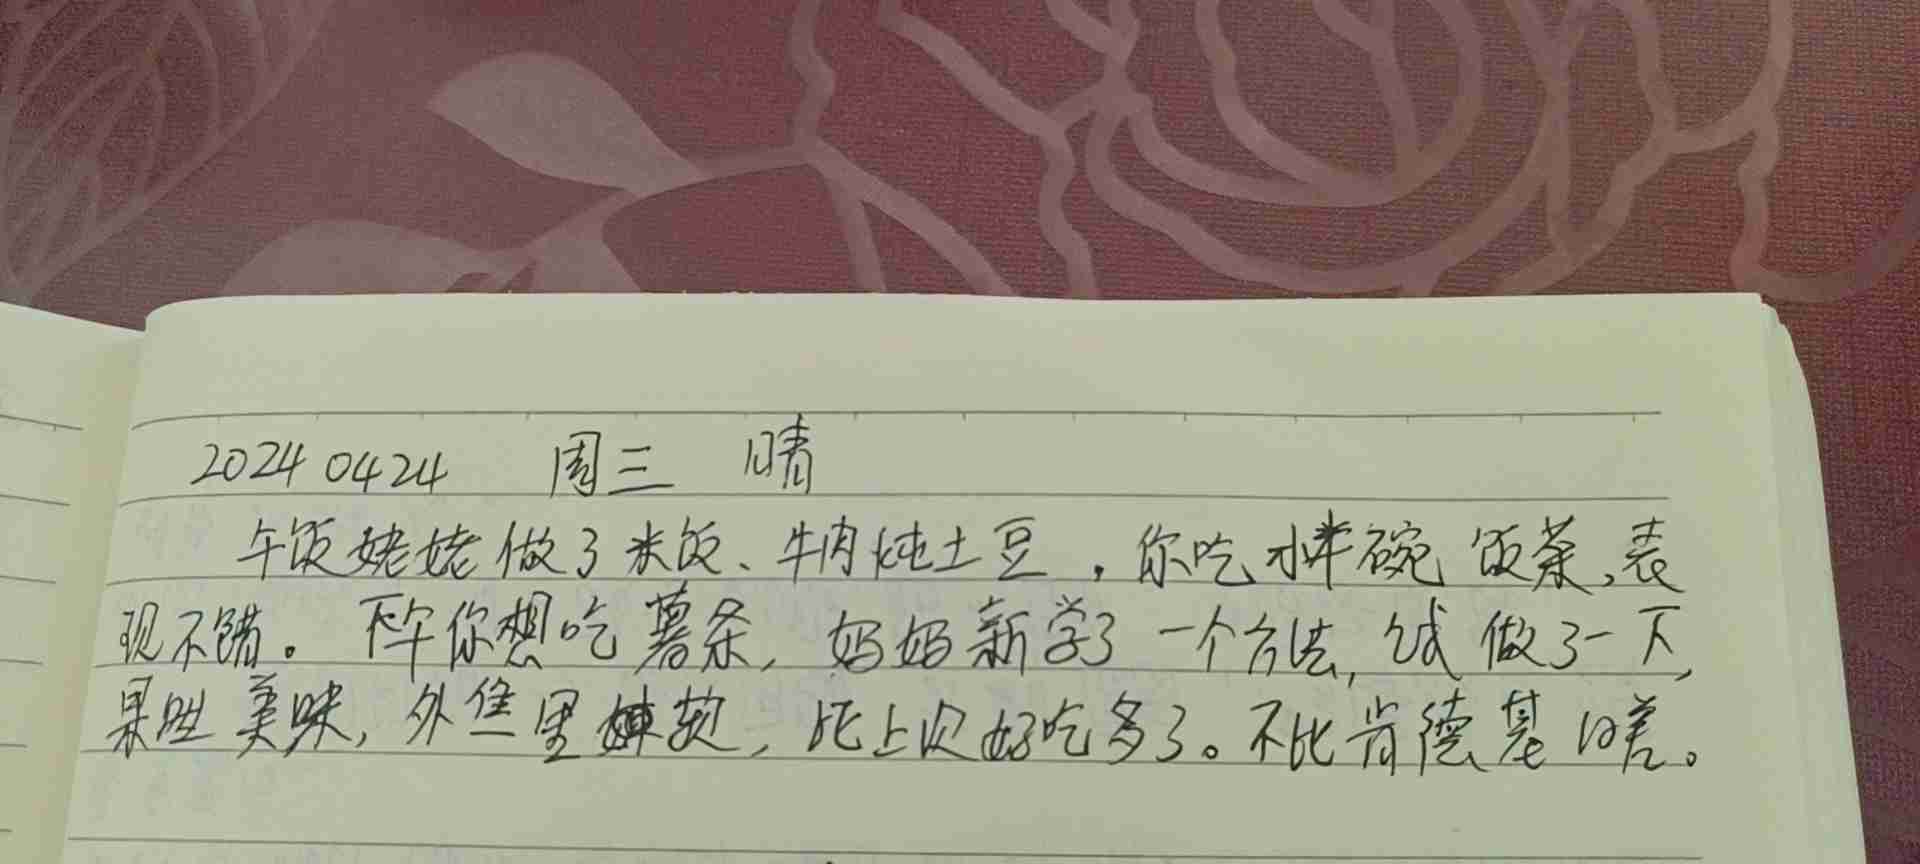 20240424 周三 晴
午饭姥姥做了米饭、牛肉炖土豆，你吃半碗饭菜，表
现不错。下午你想吃薯条，妈妈新学了一个方法，试做了一下，
果然美味，外焦里嫩软，比上次好吃多了。不比肯德基差。